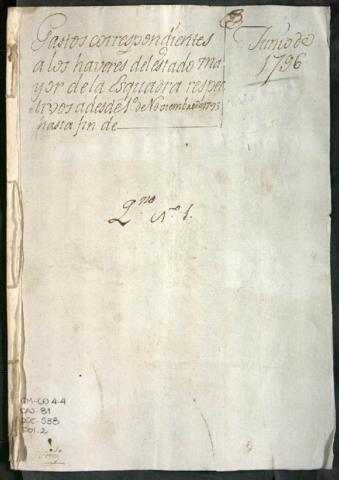 Gastos correspondientes
a los haveres del estado ma
yor de la Esquadra respec
tivos a desde 1º de Noviembre de 1795
hasta fin de
Junio de
1796
Qno Nº 1.
AM-CO 4-4
CAJ. 81
DOC. 588
FOL. 2